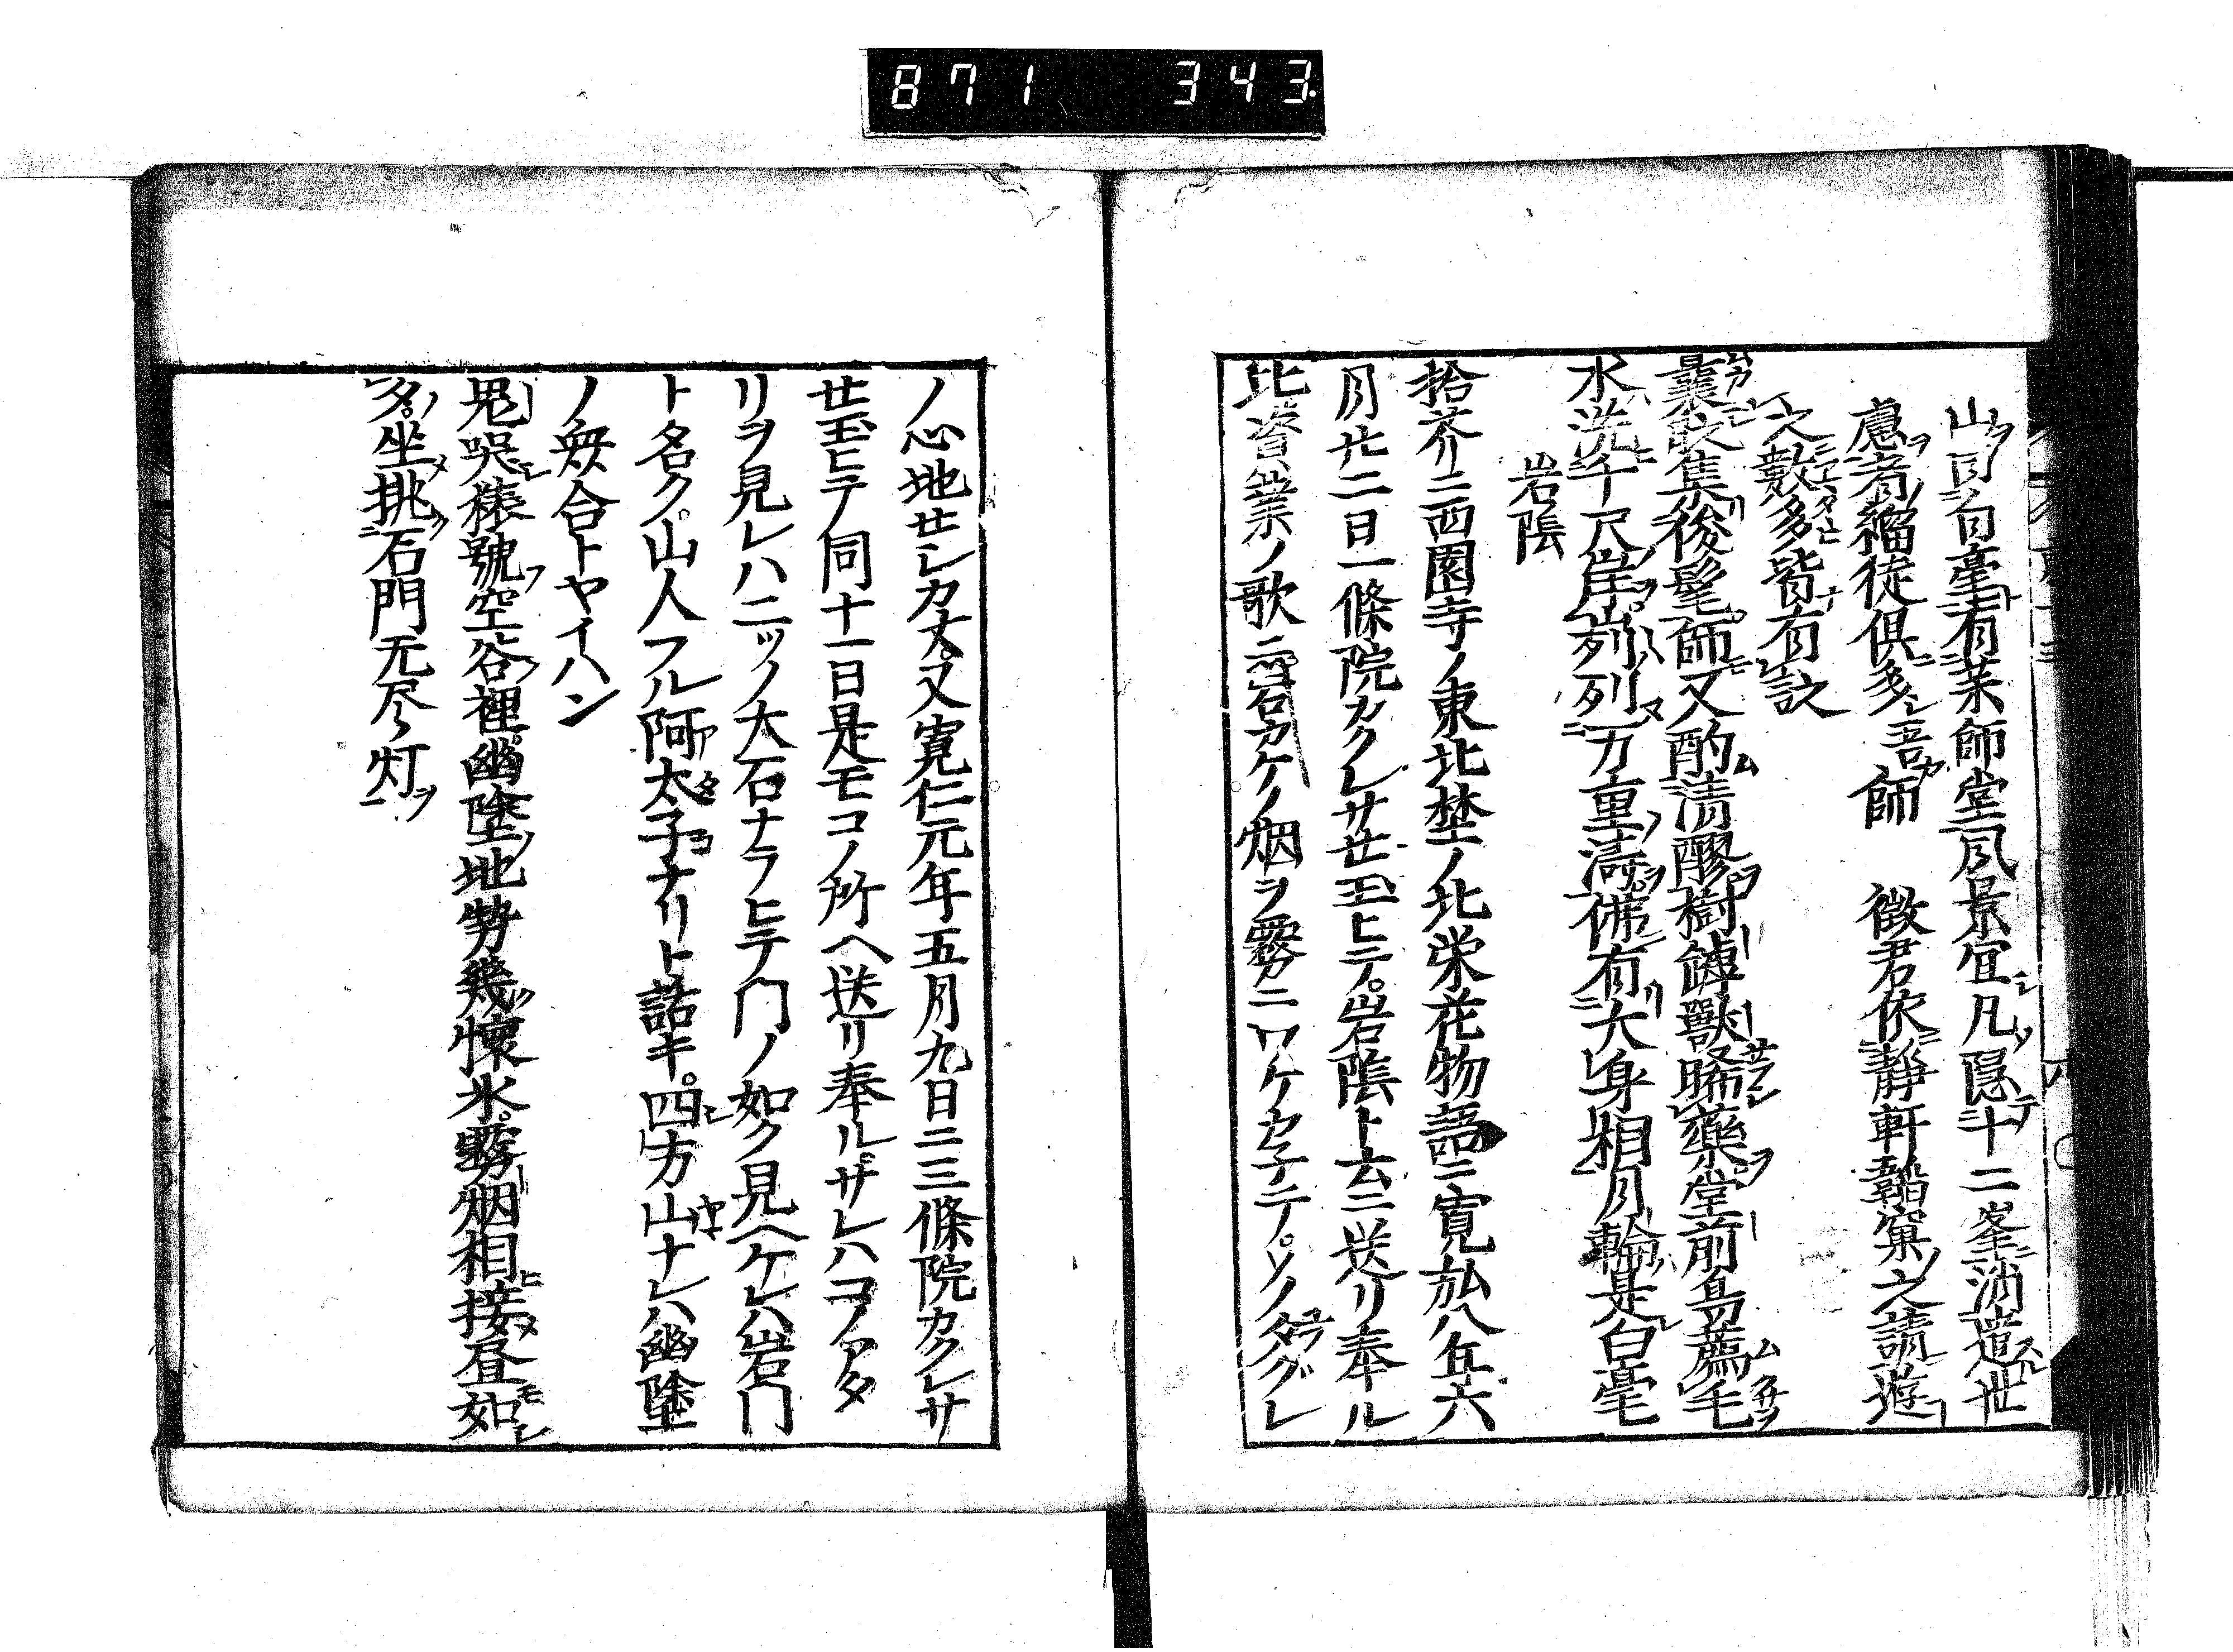 871 343
山司ヲ匄臺有茉師堂風景宜凡隠十二峯消遣世
慮者緇徒俱多吾師 徴君依靜軒韜窠之請遊
之數多皆有記
曩歌集後髦師又酌清醪樹罅獸晞藥堂前鳥薦毛
水洗千尺崖列列万重濤佛有大身相月輪是白毫
岩陰
拾芥ニ西園寺ノ東北埜ノ北栄花物語ニ寛弘八年六
月廿二日一條院カクレサせ玉ヒテ岩陰ト云ニ送リ奉ル
比資業ノ歌ニ岩カケノ烟ヲ霧ニワケカ子テソノタグレ
ノ心地せシカナ又寛仁元年五月九日ニ三條院カクレサ
せ玉ヒテ同十一日是モコノ所ヘ送リ奉ルサレハコノアタ
リヲ見レハニツノ大石ナラヒテ門ノ如ク見ヘケレハ岩门
ト名ク山人フル阿太子ナリト話キ四方山ナレハ幽陰
ノ無合トヤイハン
鬼哭猿號空谷裡幽陰地勢幾懷氷霧烟相接昼如
夕坐挑石門无尽灯